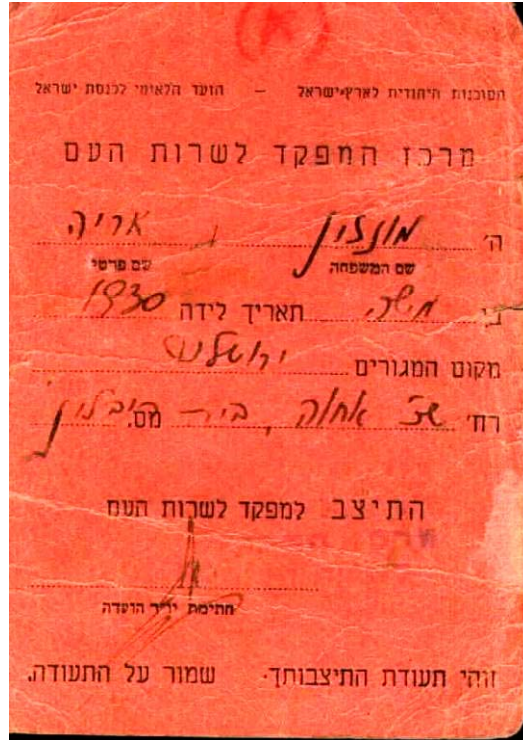 הסוכנות היהודית לארץ־ישראל — הועד הלאומי לכנסת ישראל
מרכז המפקד לשרות העם
ה' מונזון, אריה
שם המשפחה שם פרטי
בן משה תאריך לידה 1930
מקום המגורים ירושלים
רח' שכ' אחוה, בית ריבלין מס.
התיצב למפקד לשרות העם
חתימת יו״ר הועדה
זוהי תעודת התיצבותך. שמור על התעודה.